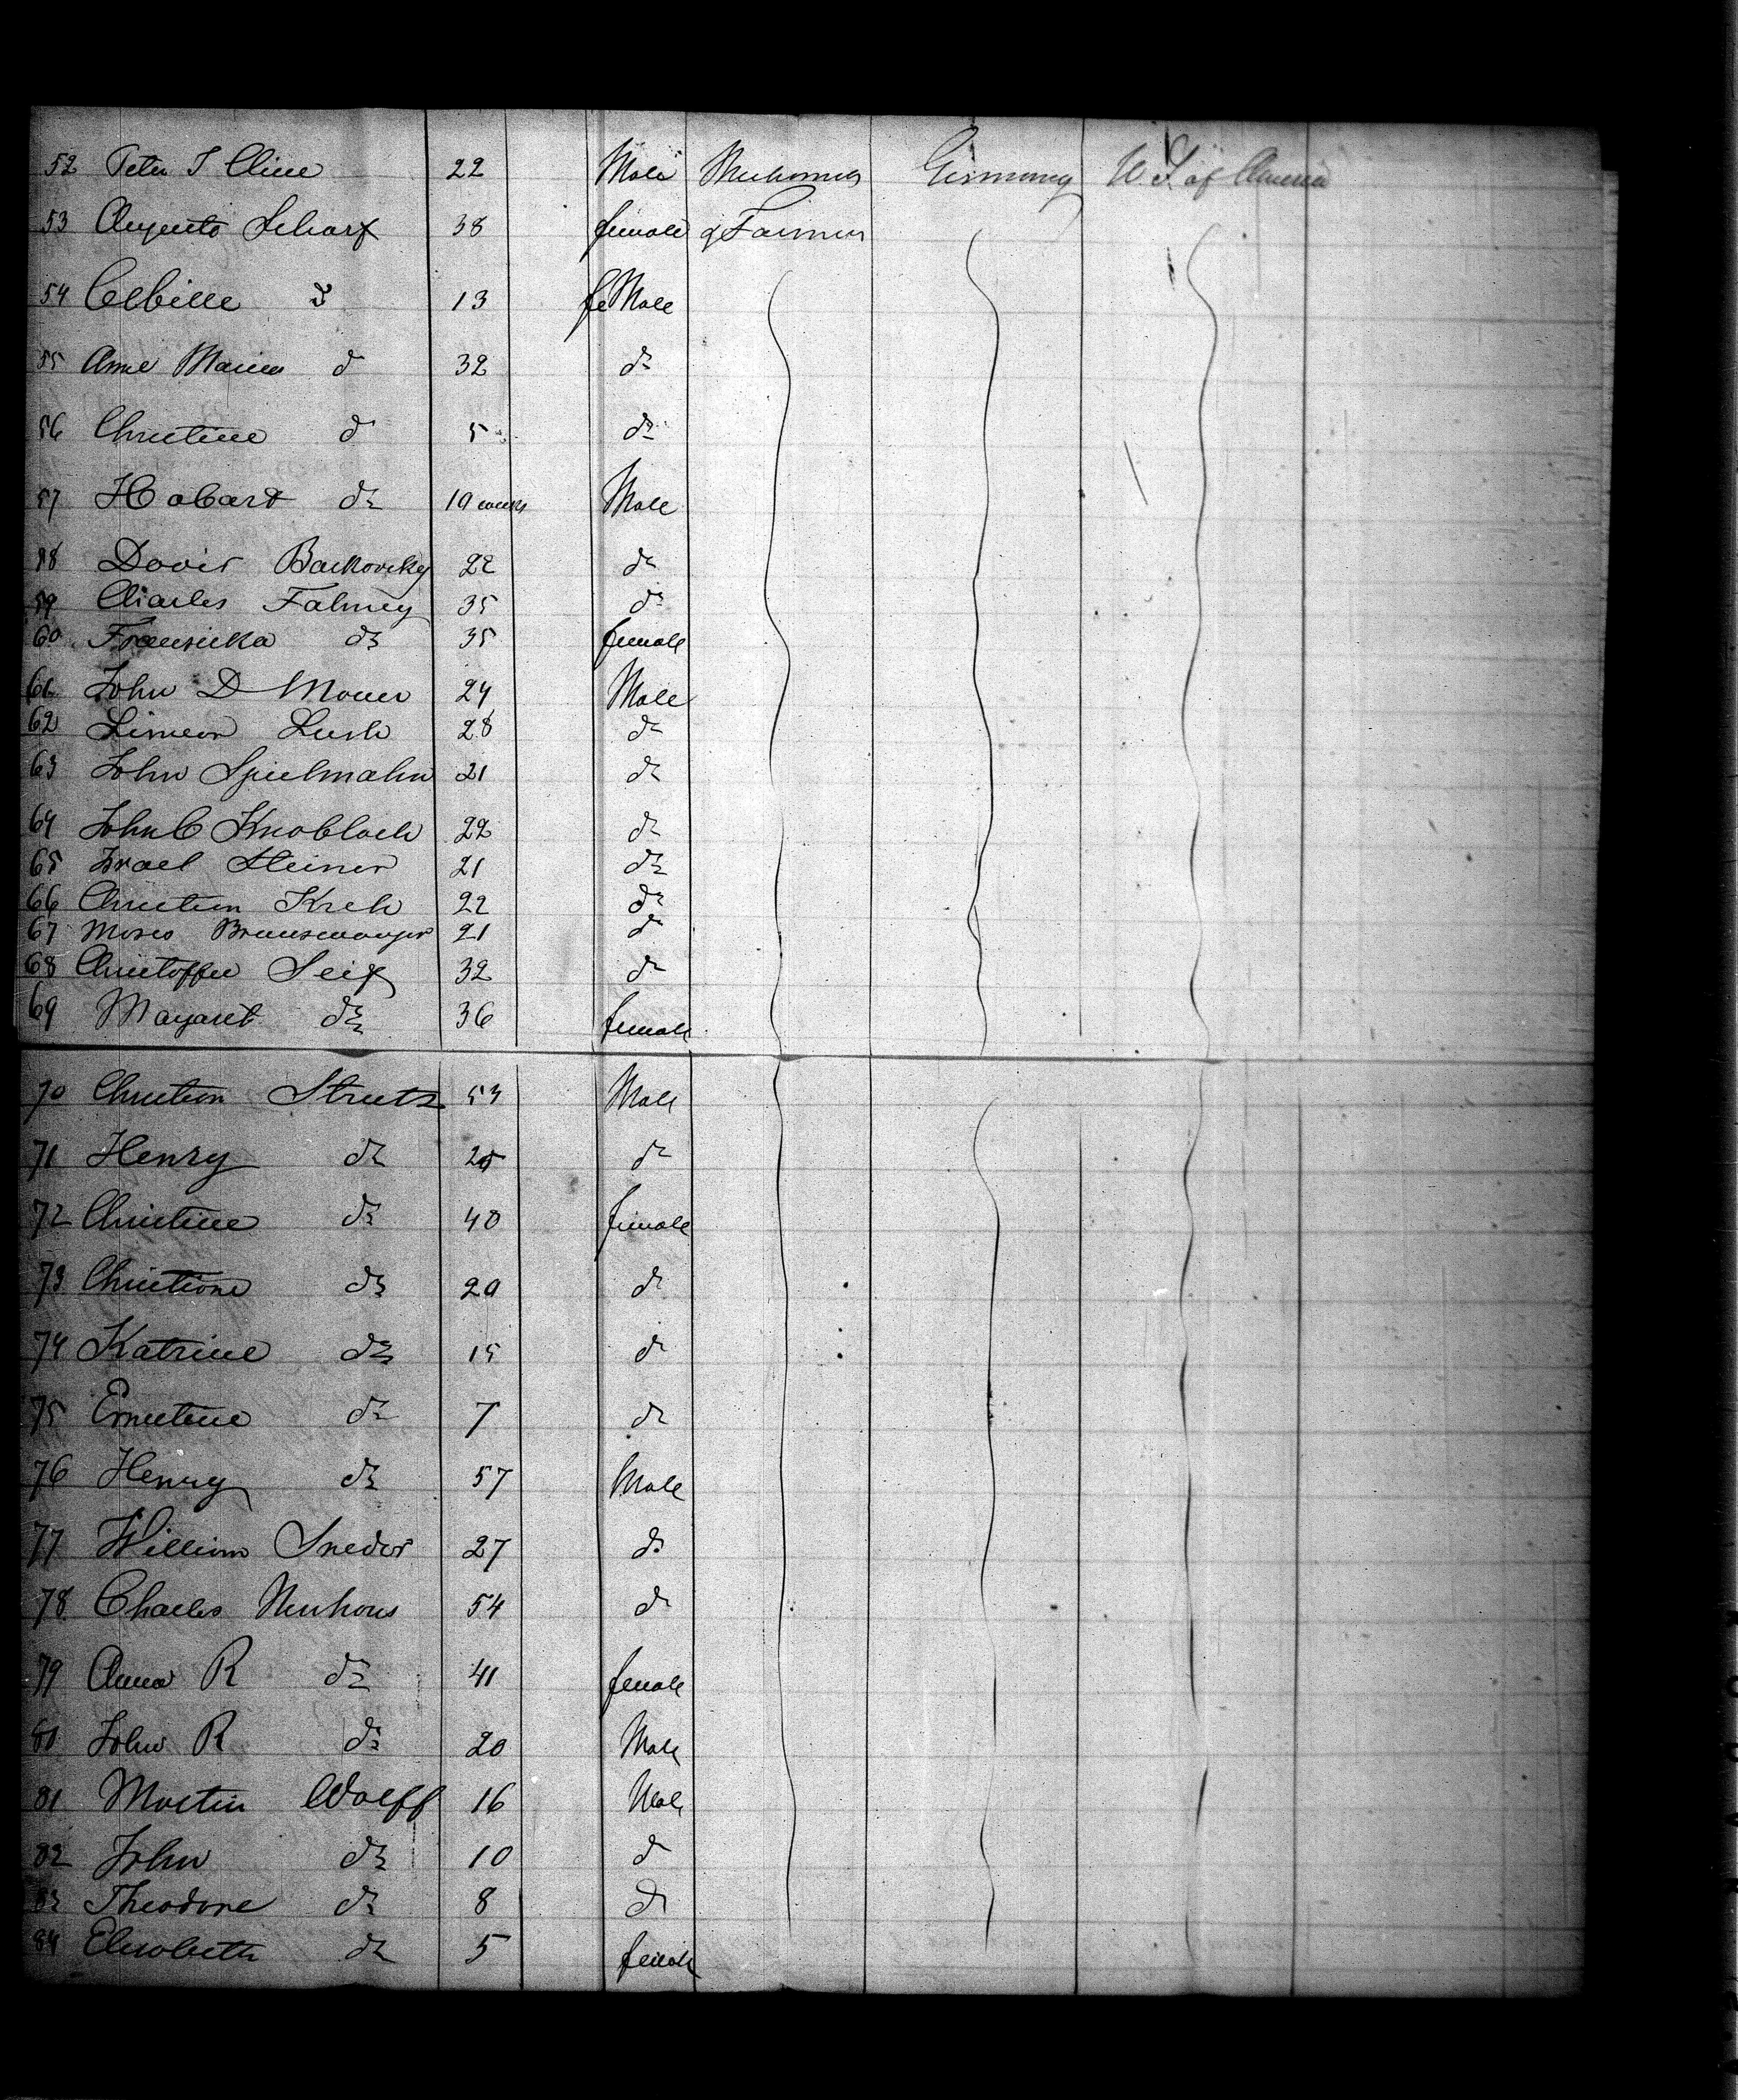 52 Peter J Cline 22 Male Mechanics Germany U.S. of America
53 Augusto Scharf 38 female & Farmers
54 13 feMale
55 Anne Maria d 32 do
56 Christine d 5 do
57 Hobart do 19 weeks Male
58 Davis Backovsky 22 do
59 Charles Falmey 35 do
60 Fransicka do 35 female
61 John D Mouer 24 Male
62 Simeon Lush 28 do
63 John Spielmahn 21 do
64 John C Knobloch 22 do
65 Israel Steiner 21 do
66 Christian Kreh 22 do
67 Moses 21 do
68 Christoffer Seif 32 do
69 Magaret do 36 female
70 Christian Strutz 53 Male
71 Henry do 25 do
72 Christine do 40 female
73 Christiane do 29 do
74 Katrine do 15 do
75 Ernestine do 7 do
76 Henry do 57 Male
77 William Sneder 27 do
78 Charles Neuhous 54 do
79 Anna R do 41 female
80 John R do 20 Male
81 Martin Wolff 16 Male
82 John do 10 do
83 Theodore do 8 do
84 Elisabeth do 5 female